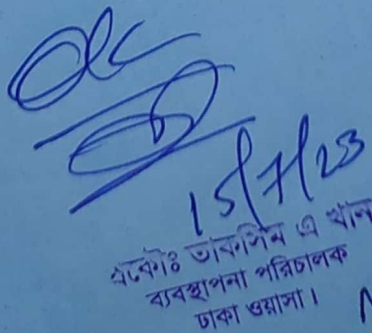 15/7/23
প্রকৌঃ তাকসিম এ খান
ব্যবস্থাপনা পরিচালক
ঢাকা ওয়াসা।